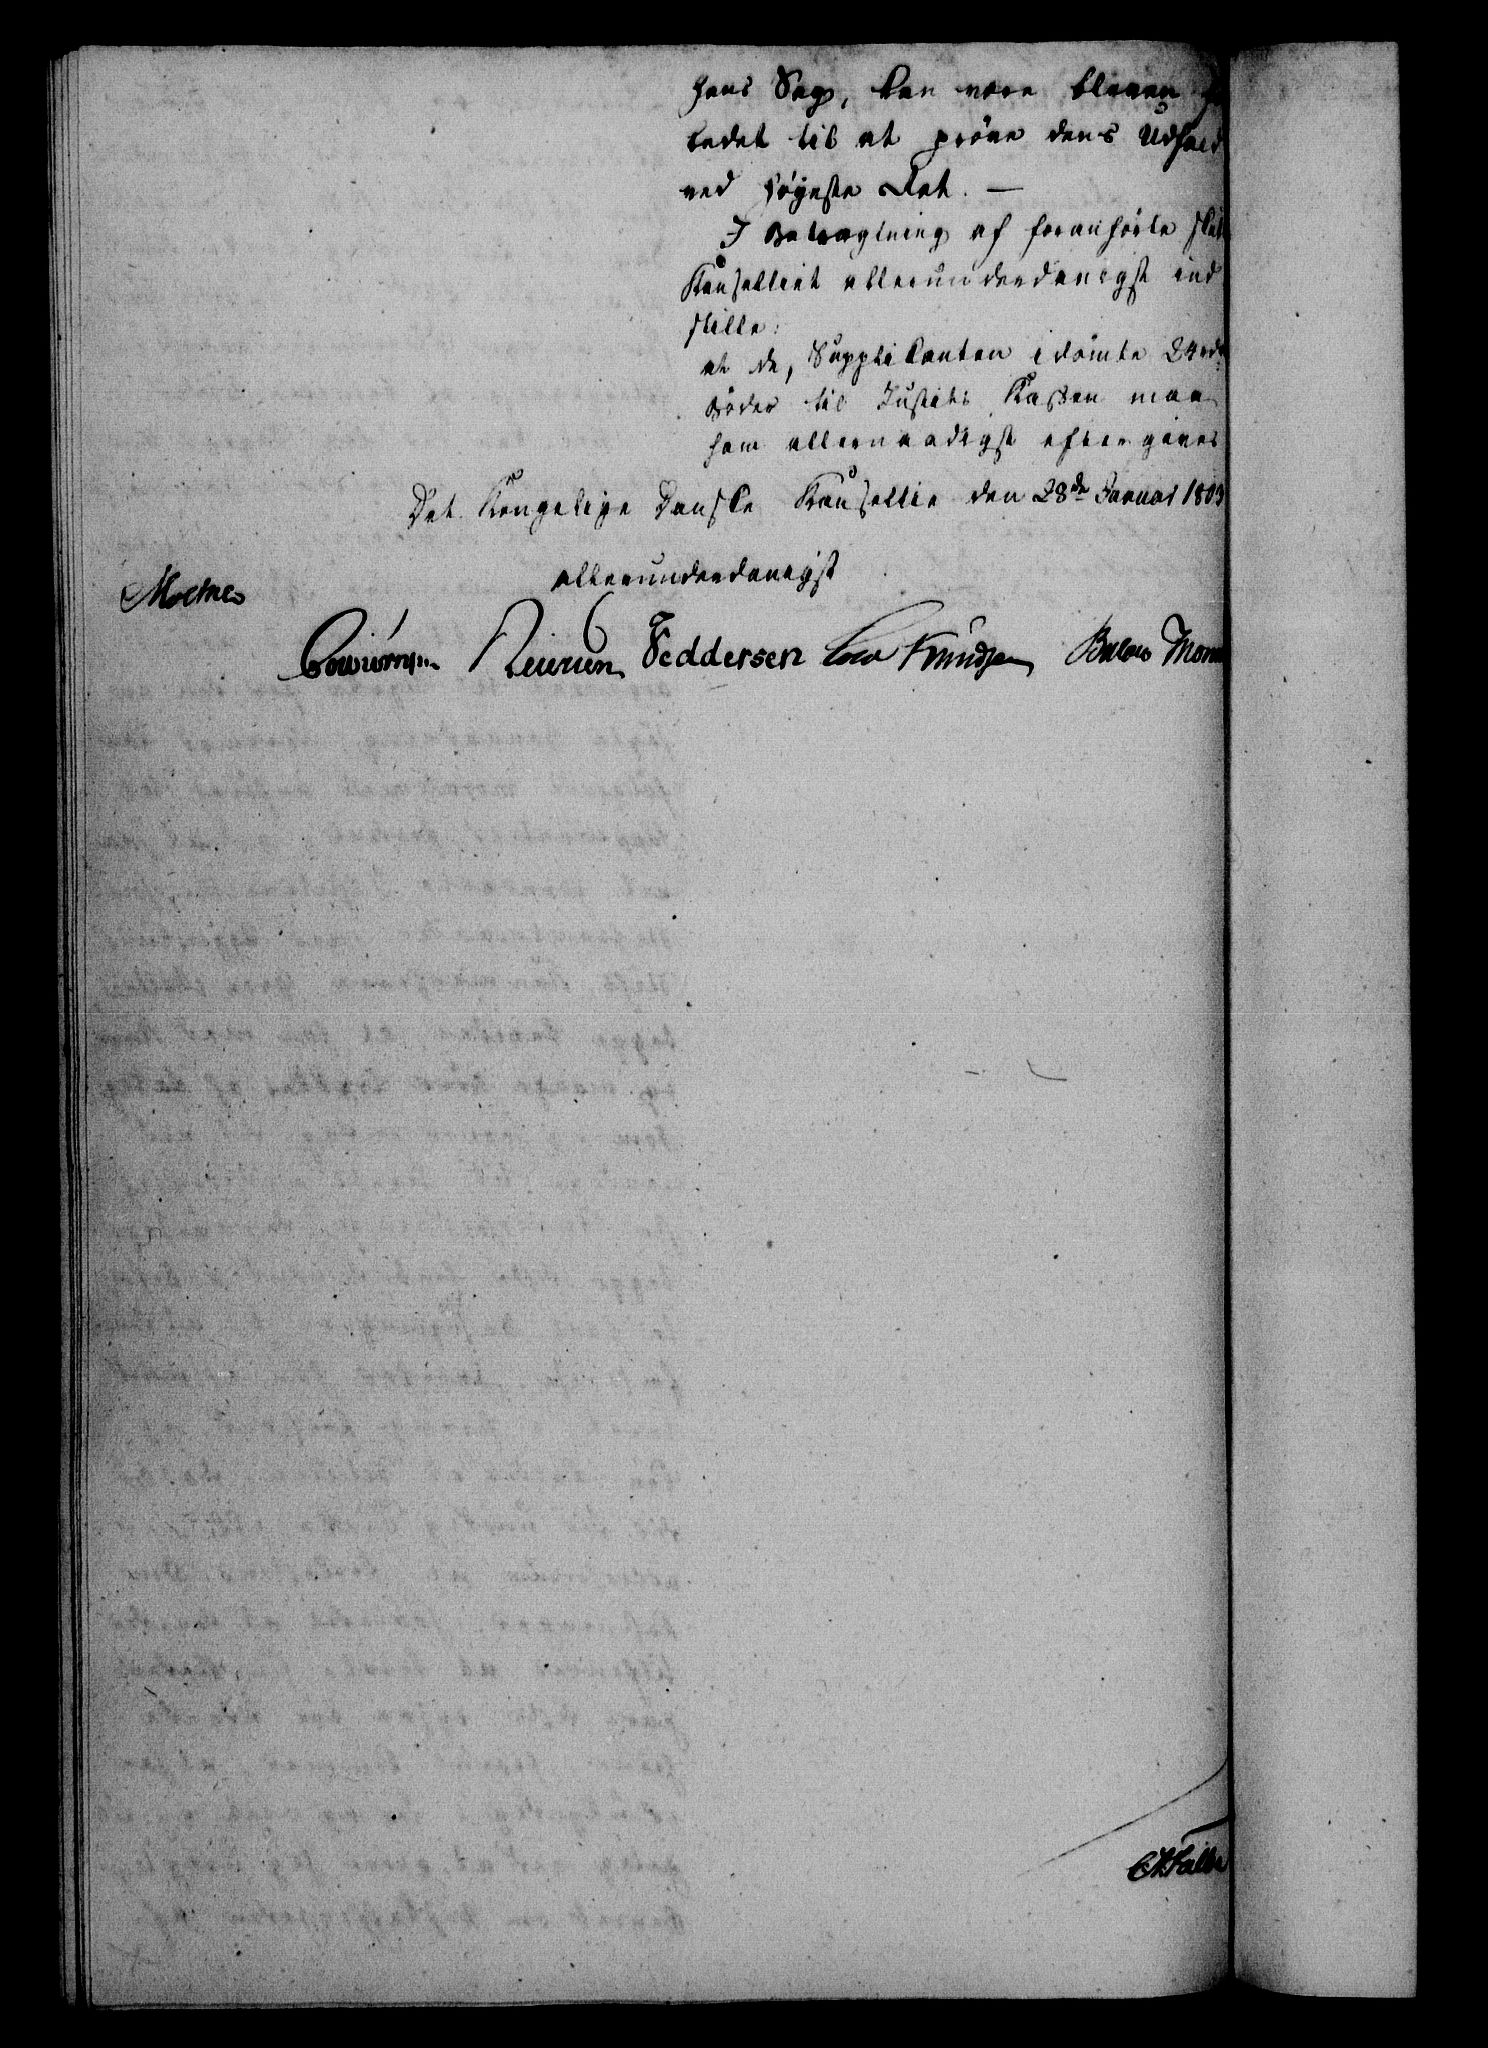 hans Sag, kan være bleven
ledet til at prøve dens Udfald
ved Høyeste Ret. —
I Betragtning af foranførte skul
Kanselliet allerunderdanigst ind
stille:
at de, Supplikanten idømte 24 rdr
Bøder til Justits Kassen maae
ham allernaadigst eftergives
Det Kongelige Danske Kansellie den 28de Januar 1803
allerunderdanigst
Moltke
Feddersen Knudsen Bülow